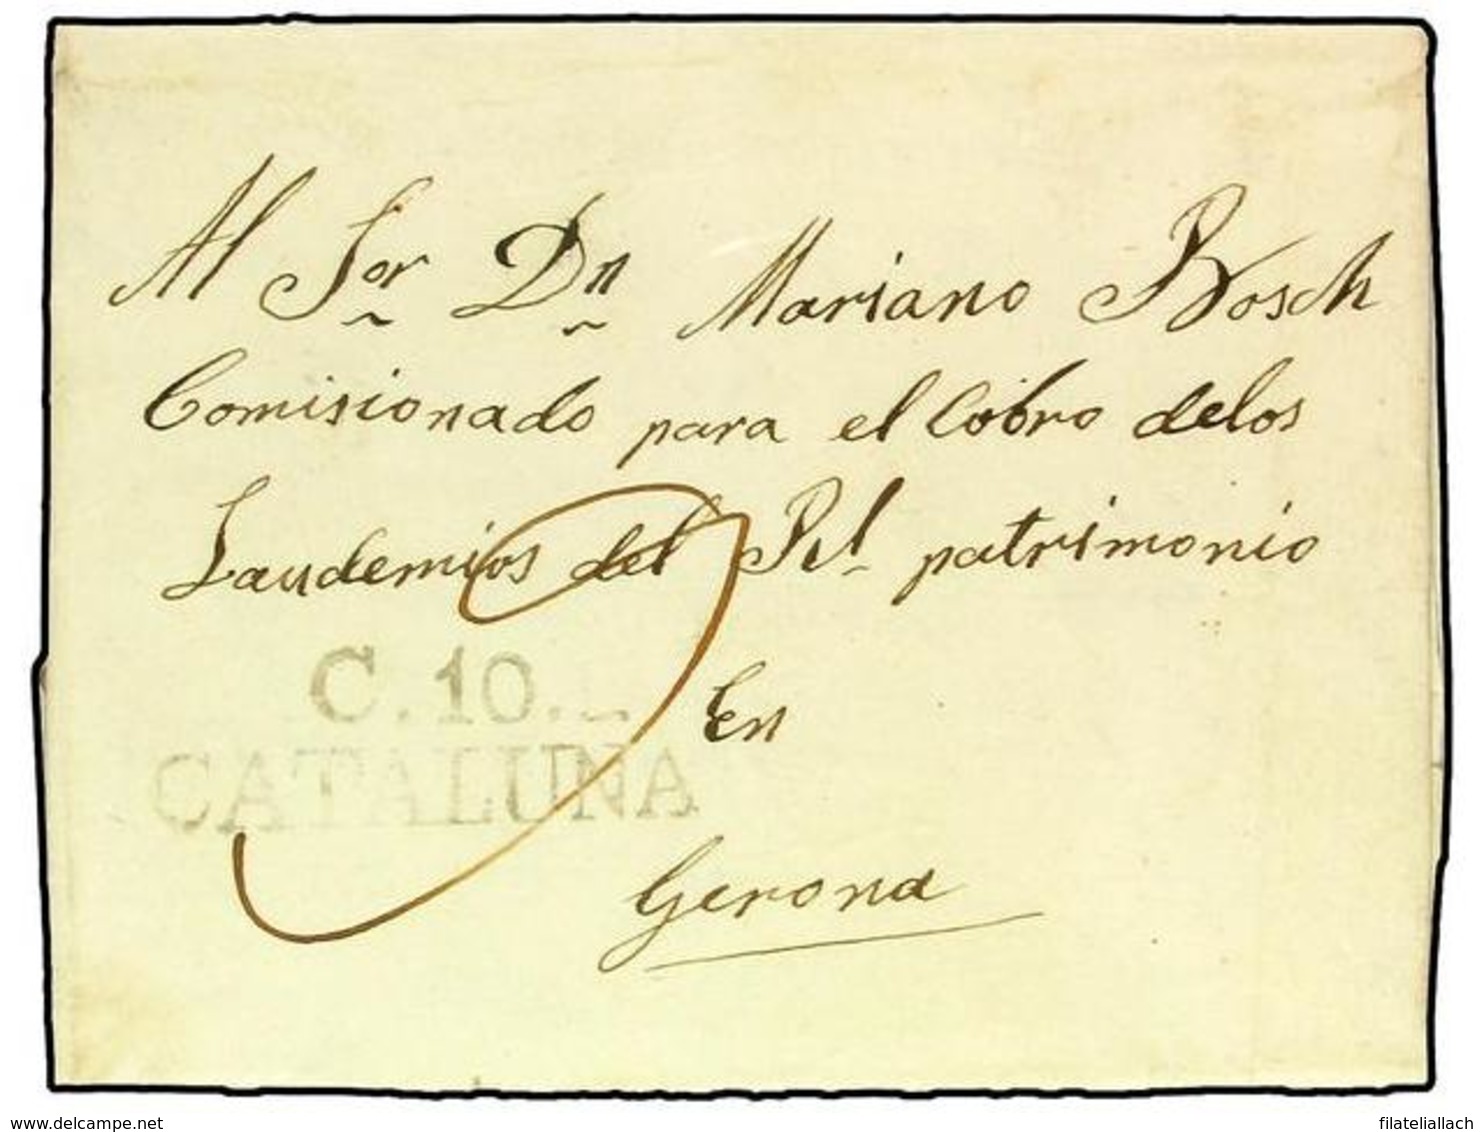 Al Sor Dn Mariano Bosch
Comisionado para el Cobro delos
Laudemios del Rl. patrimonio
C. 10.
CATALUÑA
En
Gerona
www.delcampe.net
filateliallach